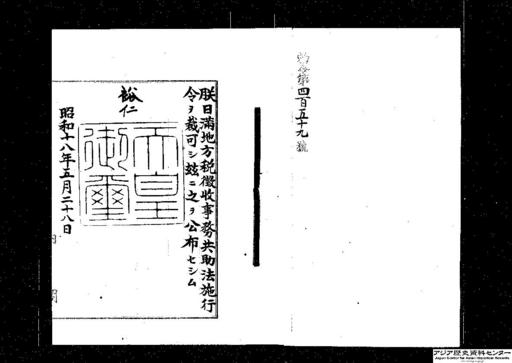 勅令第四百五十九號
朕日滿地方税徴收事務共助法施行
令ヲ裁可シ玆ニ之ヲ公布セシム
裕仁
天皇
御璽
昭和十八年五月二十八日
アジア歴史資料センター
Japan Center for Asian Historical Records